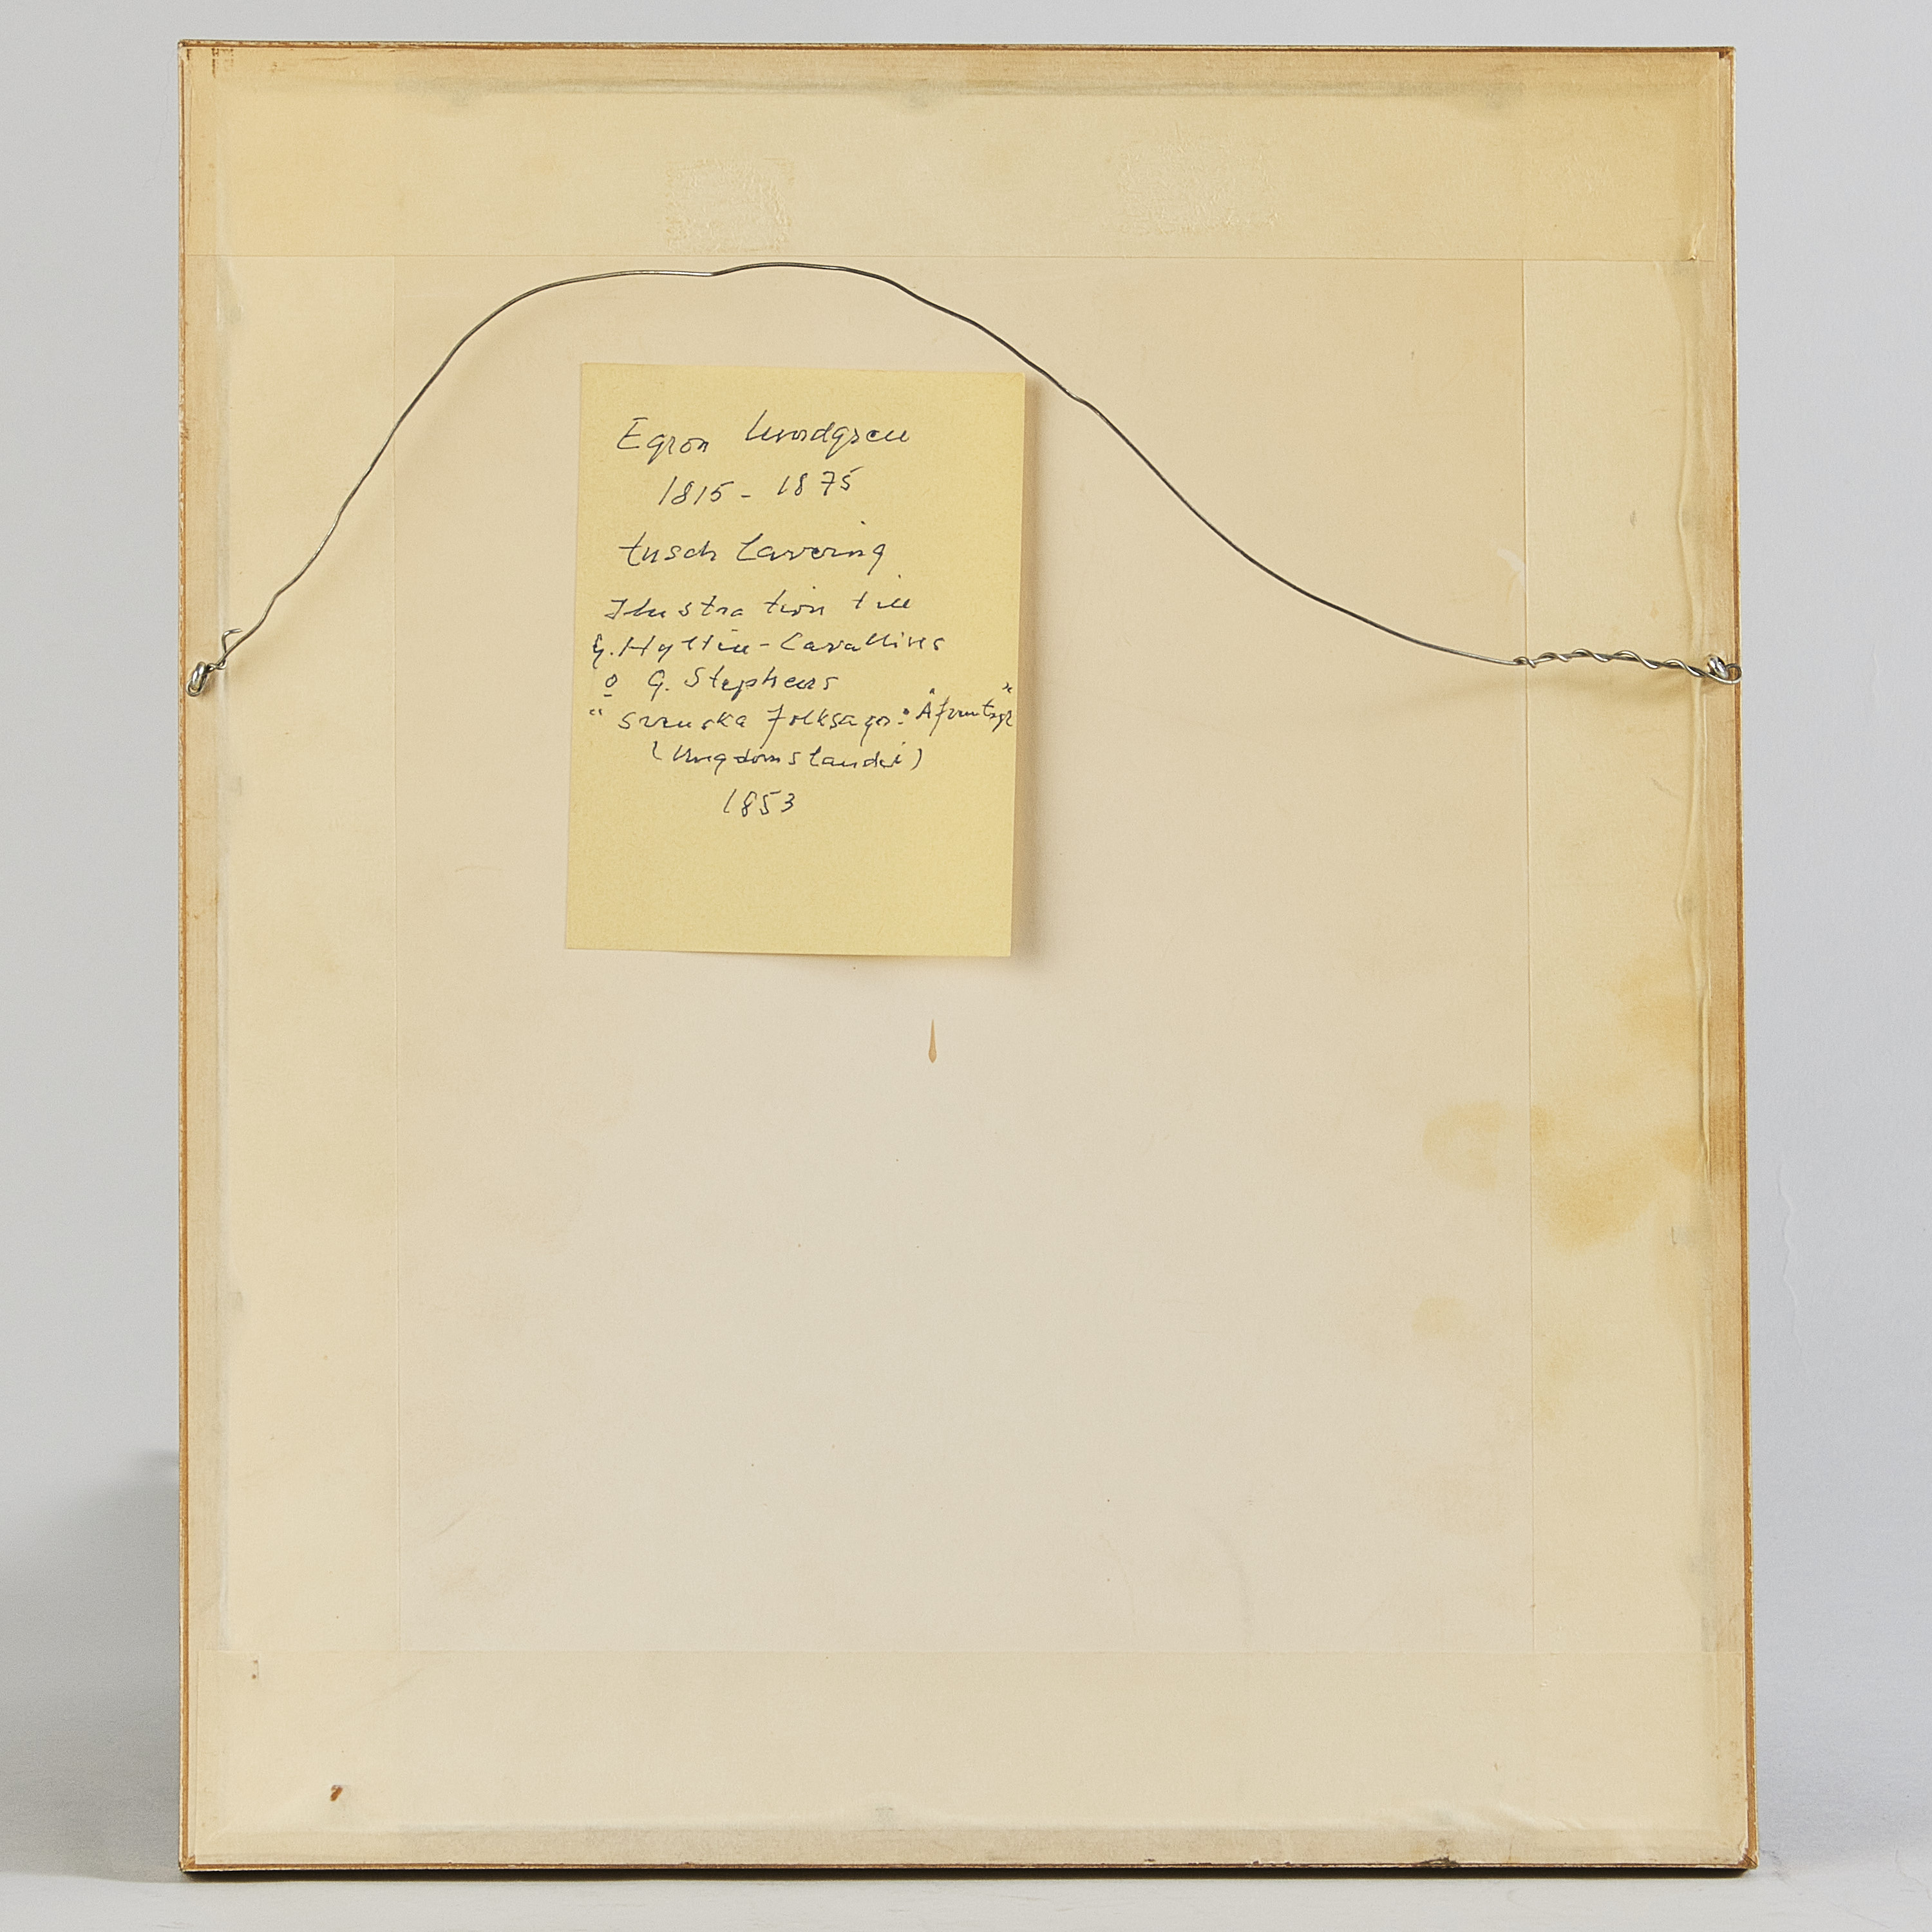 Egron Lundgren
1815 - 1875
tusch lavering
Illustration till
G. Hyltén-Cavallius
o G. Stephens
"Svenska folksagor o Äfventyr"
(Ungdomslandet)
1853